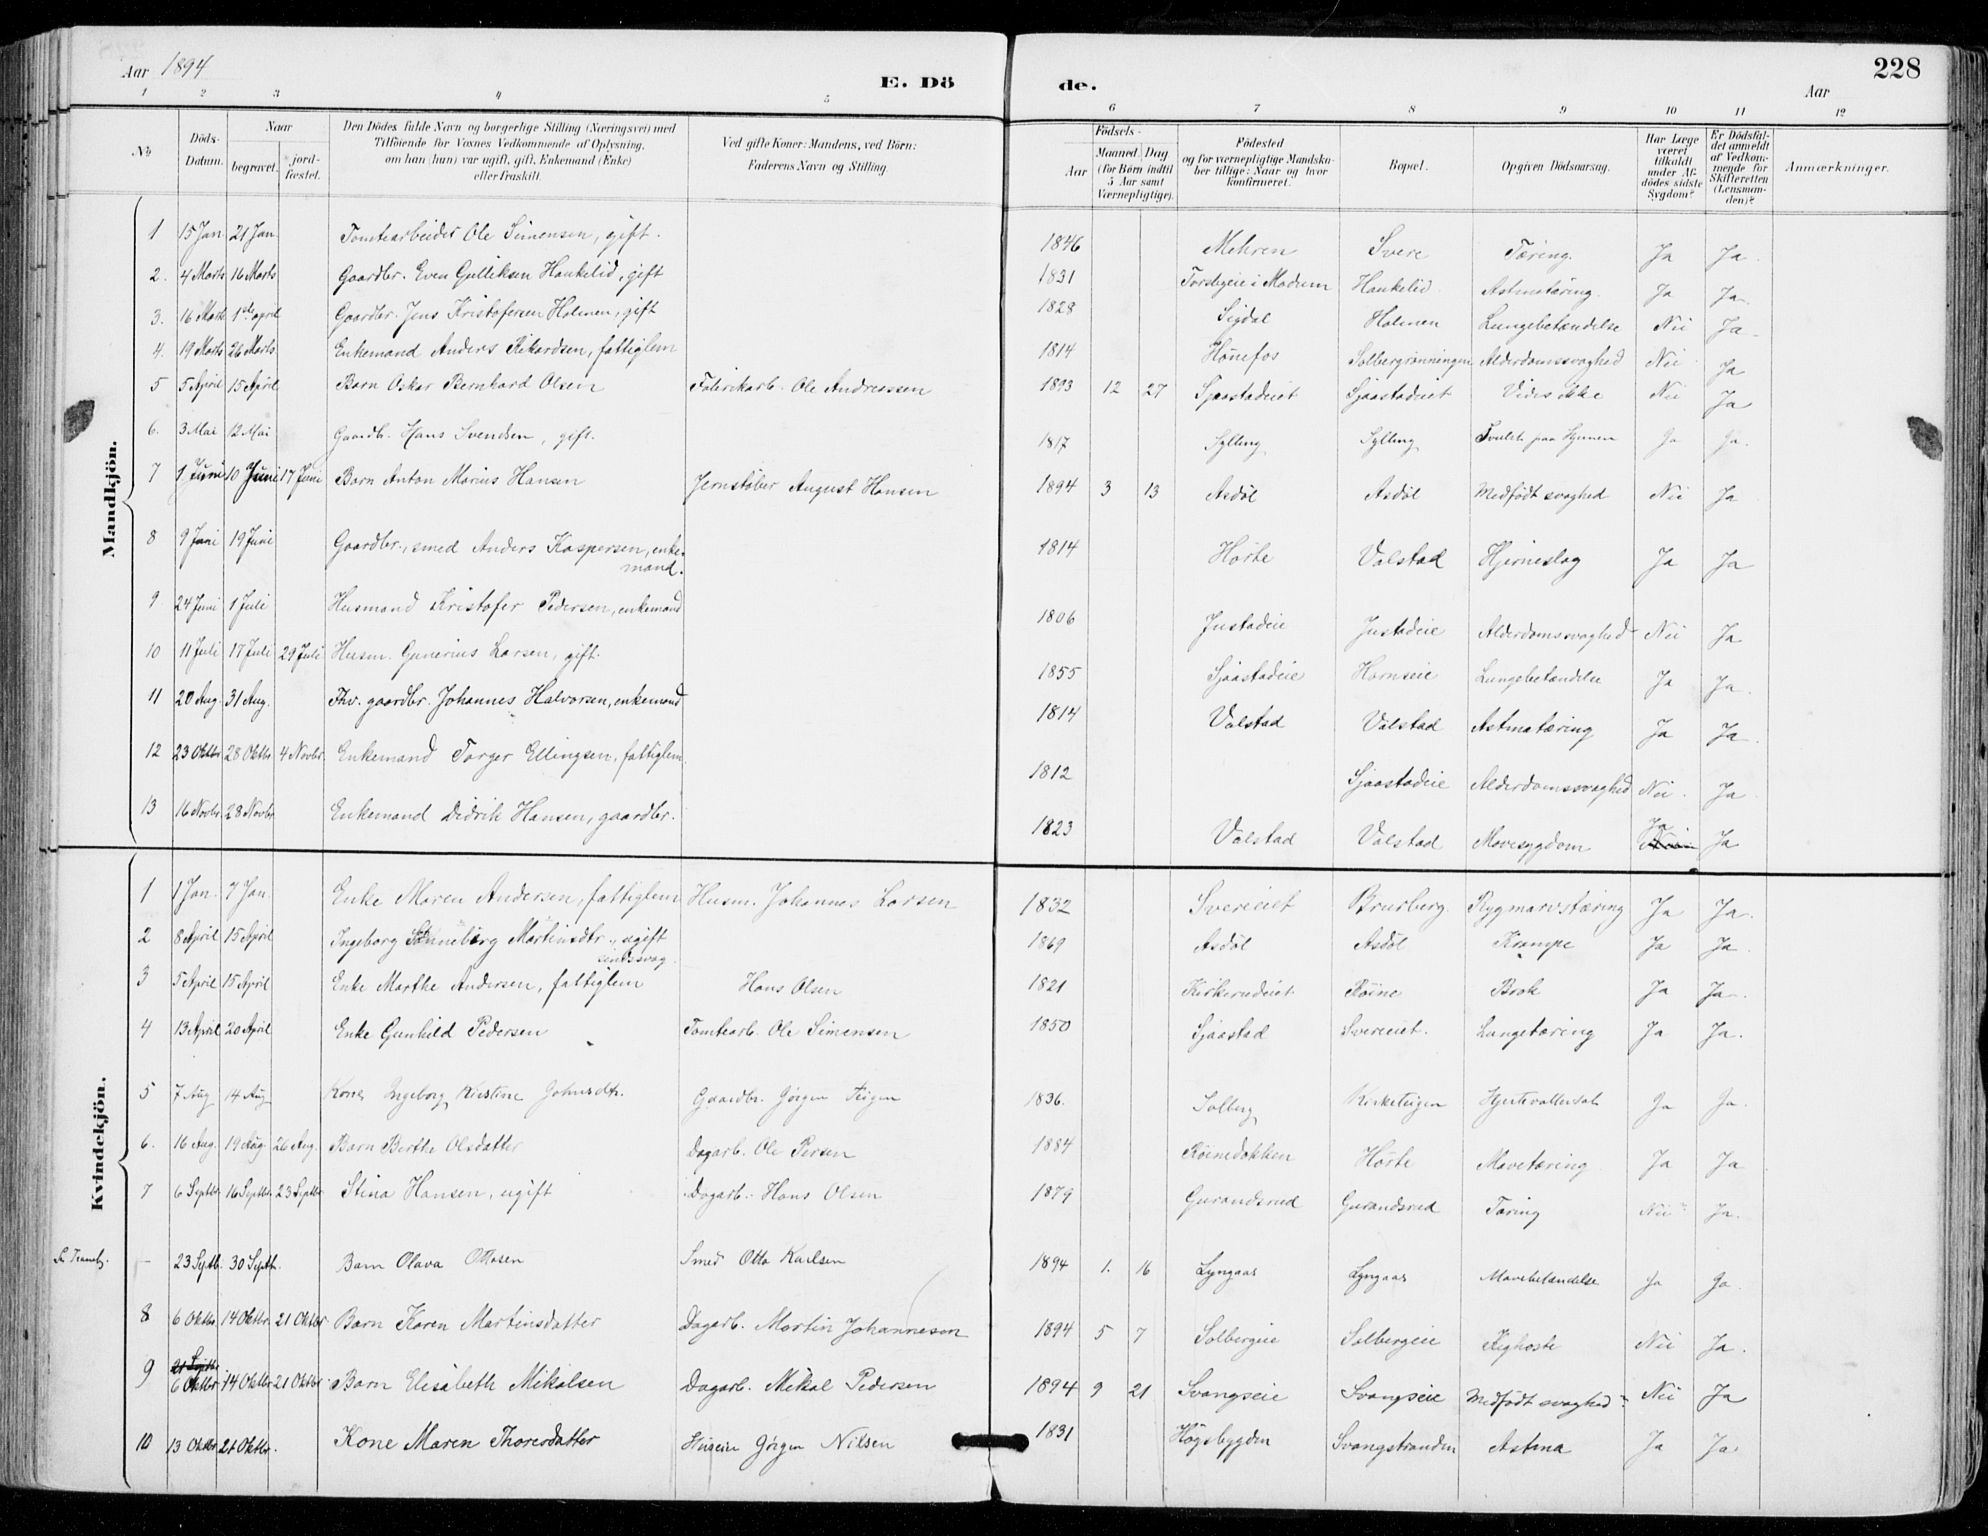 228
Aar 1894
E. Dö
de.
Aar
1 2 3 4 5 6 7 8 9 10 11 12
No
Döds-Datum.
Naar
begravet.
jordfæstet.
Den Dödes fulde Navn og borgerlige Stilling (Næringsvei) med
Tilföiende for Voxnes Vedkommende af Oplysning,
om han (hun) var ugift, gift, Enkemand (Enke)
eller fraskilt.
Ved gifte Koner: Mandens, ved Börn:
Faderens Navn og Stilling.
Födsels-
Aar
Maaned Dag
(for Börn indtil
5 Aar samt
Værnepligtige).
Födested
og for værnepligtige Mandskaber tillige: Naar og hvor
konfirmeret.
Bopæl.
Opgiven Dödsaarsag.
Har Læge været tilkaldt under Afdödes sidste Sygdom?
Er Dödsfaldet anmeldt af Vedkommende for Skifteretten (Lensmanden)?
Anmærkninger.
Mandkjön.
1 15 Jan 21 Jan Tomtearbeider Ole Simensen, gift. 1846 Mehren Svere Tæring. Ja Ja.
2. 4 Marts 16 Marts Gaardbr. Even Gulliksen Haukelid, gift 1831 Forsbyeie i Modum Haukelid. Astmatæring. Ja Ja.
3. 16 Marts 1ste april Gaardbr. Jens Kristofersen Holmen, gift 1828 Sigdal Holmen Lungebetændelse Nei Ja
4. 19 Marts 26 Marts Enkemand Anders Rikardsen, fattiglem 1814 Hønefos Solbergrønningen Alderdomssvaghed Nei Ja
5 5 April 15 April Barn Oskar Bernhard Olsen Fabrikarb. Ole Andreassen 1893 12 27 Sjaastadeiet Sjaastadeiet Vides ikke Nei Ja
6. 3 Mai 12 Mai Gaardb. Hans Svendsen, gift. 1817 Sylling Sylling paa Ja Ja.
7 1 Juni 10 Juni 17 Juni Barn Anton Marius Hansen Jernstøber August Hansen 1894 3 13 Asdøl Asdøl Medfødt svaghed Nei Ja
8 9 Juni 19 Juni Gaardbr., smed Anders Kaspersen, enkemand. 1814 Hørte Valstad Hjerneslag Ja Ja
9 24 Juni 1 Juli Husmand Kristofer Pedersen, enkemand 1806 Justadeie Justadeie Alderdomssvaghed Nei Ja
10 11 Juli 17 Juli 29 Juli Husm. Gunerius Larsen, gift. 1855 Sjaastadeie Hornseie Lungebetændelse Ja Ja.
11 20 Aug. 31 Aug. Fhv. gaardbr. Johannes Halvorsen, enkemand 1814 Valstad Valstad Astmatæring Ja Ja.
12 23 Oktbr. 28 Oktbr. 4 Novbr. Enkemand Torger Ellingsen, fattiglem. 1812 Sjaastadeie Alderdomssvaghed Nei. Ja
13 16 Novbr. 28 Novbr. Enkemand Didrik Hansen, gaardbr. 1823 Valstad Valstad Mavesygdom Ja Ja
Kvindekjön.
1 1 Jan. 7 Jan. Enke Maren Andersen, fattiglem Husm. Johannes Larsen 1832 Svereeiet Brusberg. Rygmarvstæring Ja Ja.
2 8 April 15 April Ingeborg Martinsdtr., ugift sindssvag. 1869 Asdøl Asdøl Krampe Ja Ja.
3 5 April 15 April Enke Marthe Andersen, fattiglem Hans Olsen 1821 Kirkerudeiet Røine Brok Ja Ja.
4 13 April 20 April Enke Gunhild Pedersen Tomtearb. Ole Simensen 1850 Sjaastad Svereeiet. Lungetæring Ja Ja.
5 7 Aug 14 Aug Kone Ingeborg Kirstine Johnsdtr. Gaardbr. Jørgen Teigen 1836. Solberg Kirketeigen Ja Ja.
6. 16 Aug. 19 Aug. 26 Aug. Barn Berthe Olsdatter Dagarb. Ole Persen 1884 Røinedokken Hørte Mavetæring Ja Ja
7 6 Septbr. 16 Septbr. 23 Septbr. Stina Hansen, ugift Dagarb. Hans Olsen 1879 Gurandsrud Gurandsrud Tæring Nei Ja.
- 23 Septb. 30 Septb. Barn Olava Ottosen Smed Otto Karlsen 1894 1. 16 Lyngaas Lyngaas Mavebetændelse Ja Ja.
8 6 Oktbr. 14 Oktbr. 21 Oktbr Barn Karen Martinsdatter Dagarb. Martin Johannesen 1894 5 7 Solbergeie Solbergeie Kighoste Nei Ja.
9 6 Oktbr. 14 Oktbr. 21 Oktbr. Barn Elisabeth Mikalsen Dagarb. Mikal Pedersen 1894 9 21 Svangseie Svangseie Medfødt svaghed Nei Ja
10 13 Oktbr 21 Oktbr. Kone Maren Thoresdatter Jørgen Nilsen 1831 Høgsbygden Svangstranden Astma Ja Ja